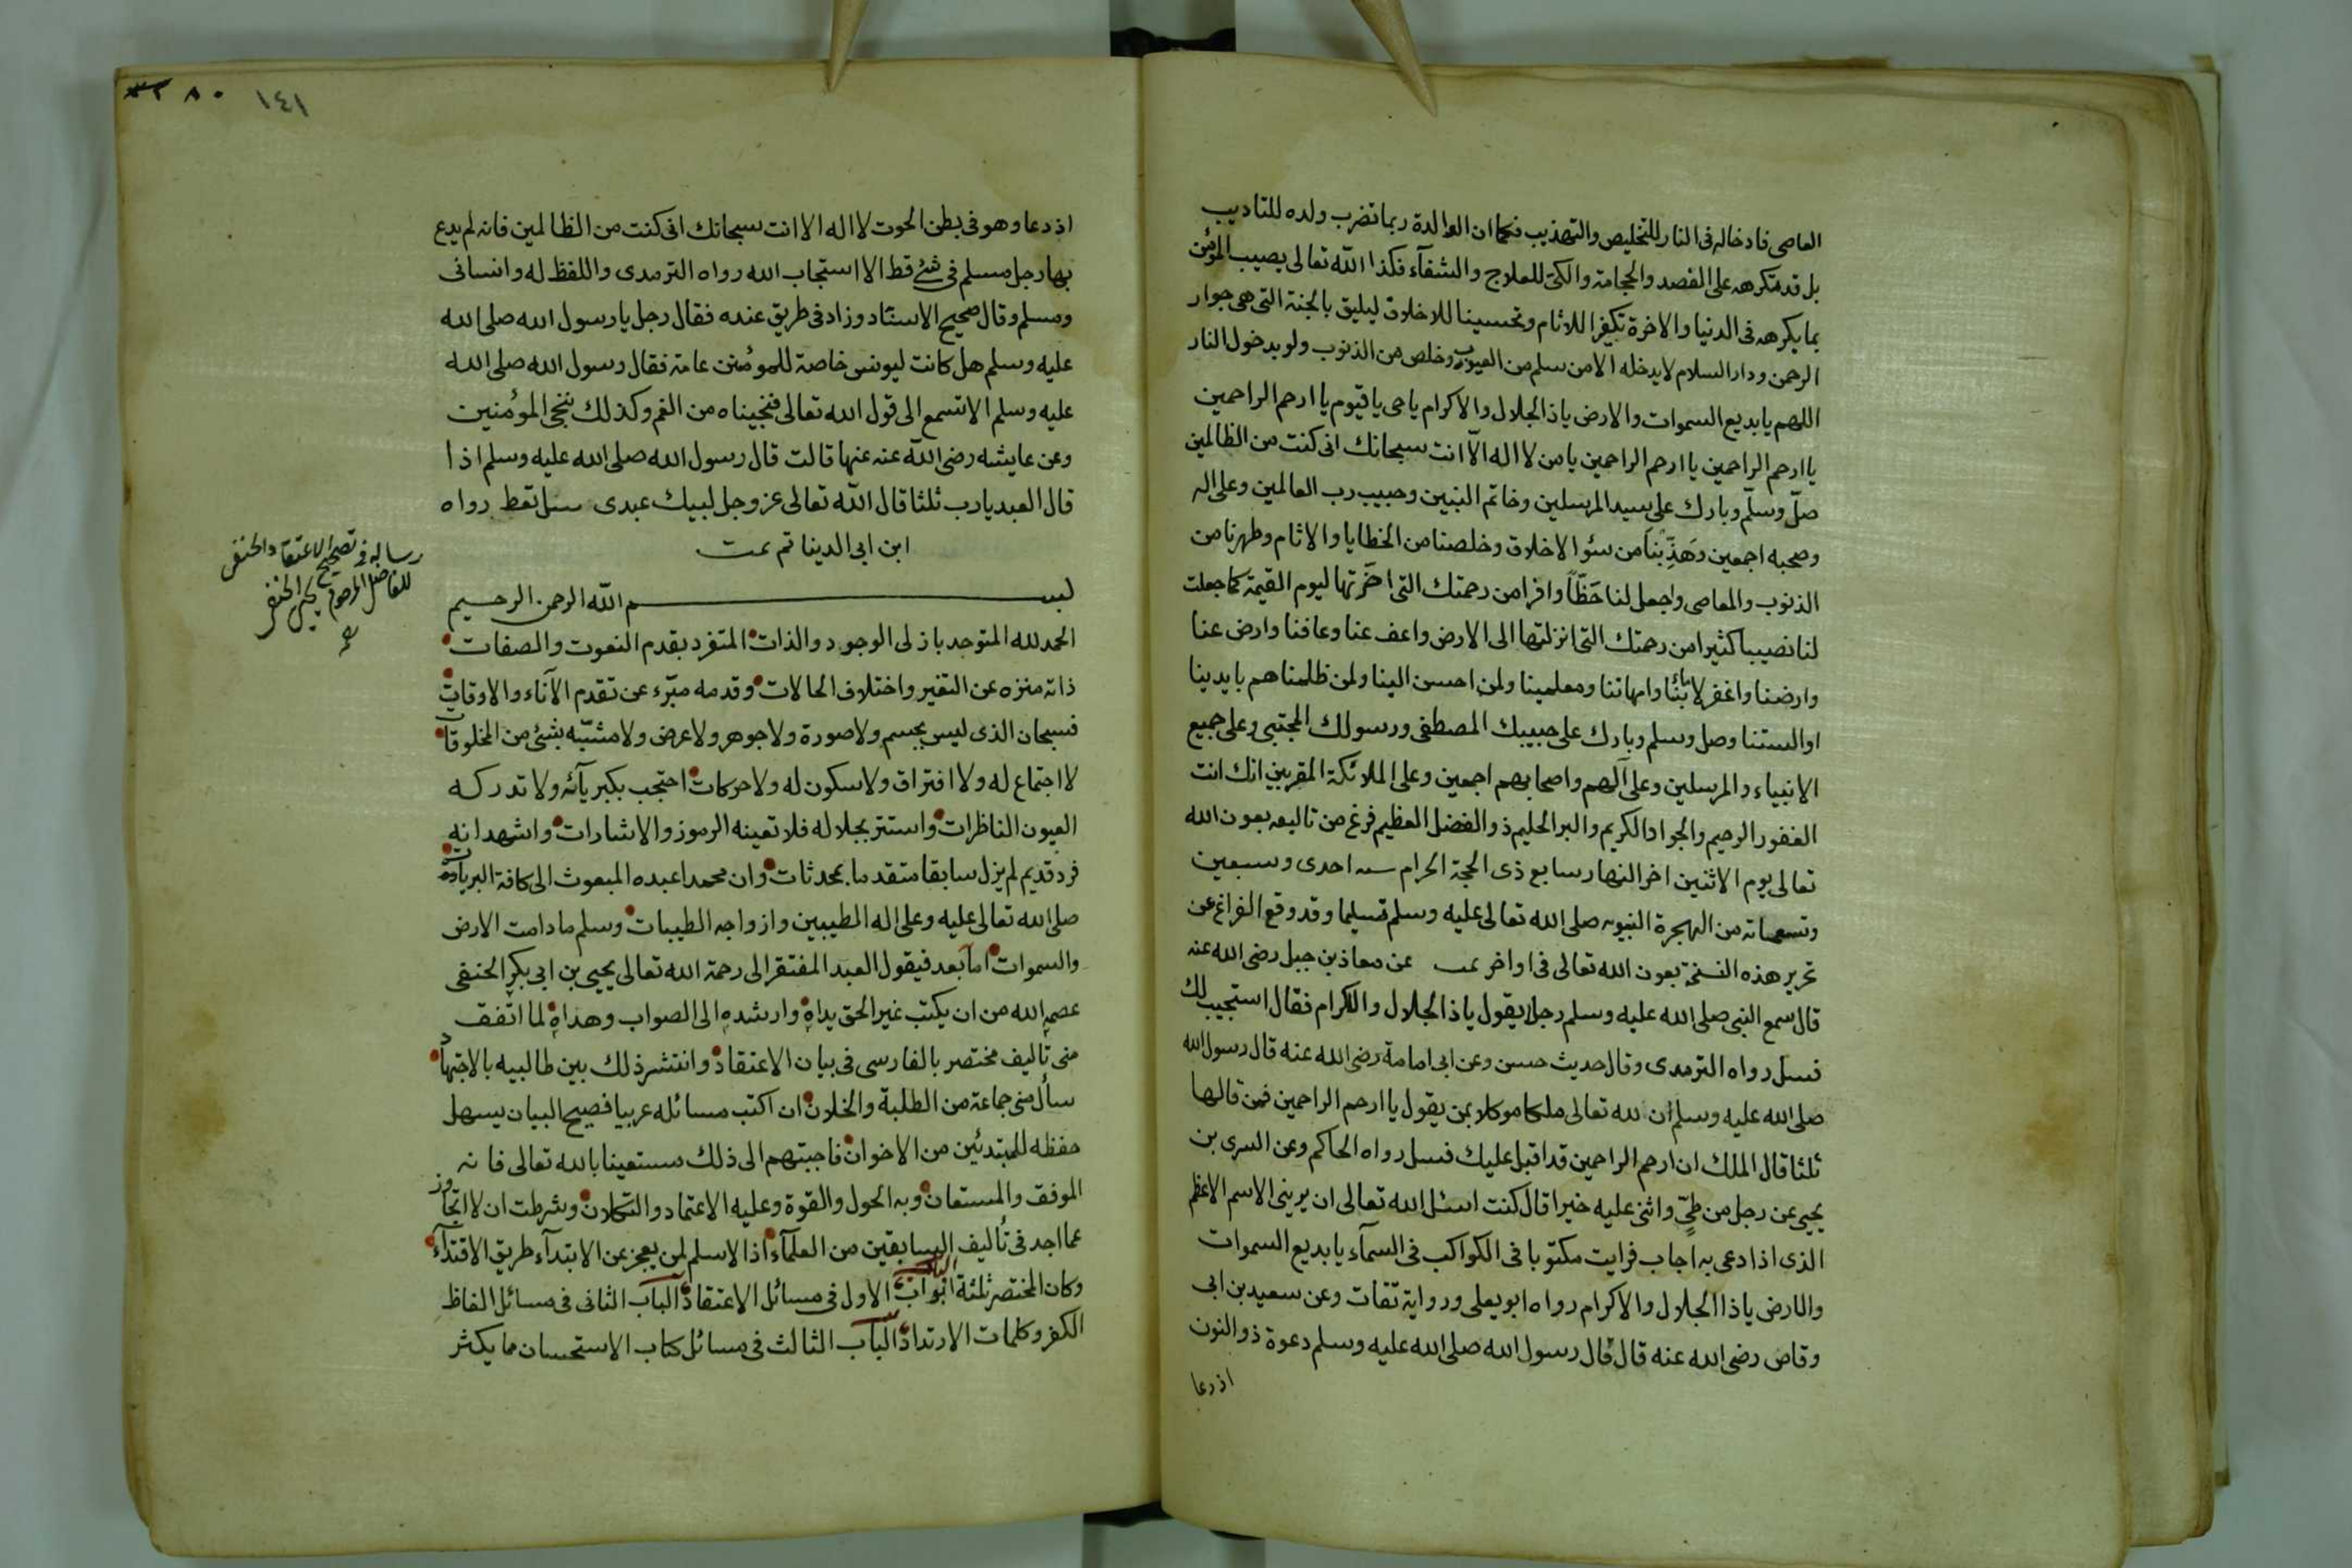 العاصى فادخاله فى النار للتخليص والتهذيب فكما ان الوالدة ربما تضرب ولده للتاديب
بل قد تكرهه على الفصد والحجامة والكى للعلاج والشفآء فكذا الله تعالى يصيب المؤمن
بما يكرهه فى الدنيا والاخرة تكفيرا للاثام وتحسينا للاخلاق ليليق بالجنة التى هى جوار
الرحمن ودار السلام لا يدخله الا من سلم من العيوب وخلص من الذنوب ولو بدخول النار
اللهم يا بديع السموات والارض يا ذا الجلال والاكرام يا حى يا قيوم يا ارحم الراحمين
يا ارحم الراحمين يا ارحم الراحمين يا من لا اله الّا انت سبحانك انى كنت من الظالمين
صلّ وسلّم وبارك على سيد المرسلين وخاتم النبيين وحبيب رب العالمين وعلى اله
وصحبه اجمعين وهَذِّبْنَا من سئو الاخلاق وخلصنا من الخطايا والاثام وطهرنا من
الذنوب والمعاصى واجعل لنا حَظّاً وافرا من رحمتك التى اخّرتها ليوم القيمة كما جعلت
لنا نصيبا كثيرا من رحمتك التى انزلتها الى الارض واعف عنا وعافنا وارض عنا
وارضنا واغفر لابائنا وامهاتنا ومعلمينا ولمن احسن الينا ولمن ظلمناهم بايدينا
او السنتنا وصل وسلم وبارك على حبيبك المصطفى ورسولك المجتبى وعلى جميع
الانبياء والمرسلين وعلى آلهم واصحابهم اجمعين وعلى الملائكة المقربين انك انت
الغفور الرحيم والجواد الكريم والبر الحليم ذو الفضل العظيم فرغ من تاليفه بعون الله
تعالى يوم الاثنين اخر النهار سابع ذى الحجة الحرام سنه احدى وسبعين
وتسعمائة من الهجرة النبويه صلى الله تعالى عليه وسلم تسليما وقد وقع الفراغ عن
تحرير هذه النسخة بعون الله تعالى فى اواخر عن معاذ بن جبل رضى الله عنه
قال سمع النبى صلى الله عليه وسلم رجلا يقول يا ذا الجلال والاكرام فقال استجيب لك
فسل رواه الترمدى وقال حديث حسن وعن ابى امامة رضى الله عنه قال رسول الله
صلى الله عليه وسلم ان لله تعالى ملكا موكلا بمن يقول يا ارحم الراحمين فمن قالها
ثلثا قال الملك ان ارحم الراحمين قد اقبل عليك فسل رواه الحاكم وعن السرى بن
يحيى عن رجل من طىّ واثنى عليه خيرا قال كنت اسئل الله تعالى ان يرينى الاسم الاعظم
الذى اذا دعى به اجاب فرايت مكتوبا فى الكواكب فى السمآء يا بديع السموات
والارض يا ذا الجلال والاكرام رواه ابو يعلى ورواية ثقات وعن سعيد بن ابى
وقاص رضى الله عنه قال قال رسول الله صلى الله عليه وسلم دعوة ذو النون
اذ دعا
١٤١ ٨٠
اذ دعا وهو فى بطن الحوت لا اله الا انت سبحانك انى كنت من الظالمين فانه لم يدع
بها رجل مسلم فى شئ قط الا استجاب الله رواه الترمدى واللفظ له وانسانى
ومسلم وقال صحيح الاسناد وزاد فى طريق عنده فقال رجل يا رسول الله صلى الله
عليه وسلم هل كانت ليونس خاصة للمومنين عامة فقال رسول الله صلى الله
عليه وسلم الا تسمع الى قول الله تعالى فنجيناه من الغم وكذلك ننجى المؤمنين
وعن عايشه رضى الله عنه عنها قالت قال رسول الله صلى الله عليه وسلم اذا
قال العبد يا رب ثلثا قال الله تعالى عز وجل لبيك عبدى سل تعط رواه
ابن ابى الدينا تم تمت
بسم الله الرحمن الرحيم
الحمد لله المتوحد بازلى الوجود والذات المتفرد بقدم النعوت والصفات
ذاته منزه عن التغير واختلاف الحالات وقدمه مبّرء عن تقدم الآناء والاوقات
فسبحان الذى ليس بجسم ولا صورة ولا جوهر ولا عرض ولا مشبّه بشئ من المخلوقات
لا اجتماع له ولا افتراق ولا سكون له ولا حركات احتجب بكبريآئه ولا تدركه
العيون الناظرات واستتر بجلاله فلا تعينه الرموز والاشارات واشهد انه
فرد قديم لم يزل سابقا متقدما بمحدثات وان محمدا عبده المبعوث الى كافة البريات
صلى الله تعالى عليه وعلى اله الطيبين وازواجه الطيبات وسلم ما دامت الارض
والسموات اما بعد فيقول العبد المفتقر الى رحمة الله تعالى يحيى بن ابى بكر الحنفى
عصمه الله من ان يكتب غير الحق يداه وارشده الى الصواب وهداه لما اتفق
منى تأليف مختصر بالفارسى فى بيان الاعتقاد وانتشر ذلك بين طالبيه بالاجتهاد
سأل منى جماعة من الطلبة والخلان ان اكتب مسائله عربيا فصيح البيان يسهل
حفظه للمبتدئين من الاخوان فاجبتهم الى ذلك مستعينا بالله تعالى فانه
الموفق والمستعان وبه الحول والقوة وعليه الاعتماد والتكلان وشرطت ان لا اتجاوز
عما اجد فى تأليف السابقين من العلمآء اذ الاسلم لمن يعجز عن الابتدآء طريق الاقتدآء
وكان المختصر ثلثة ابواب الباب الاول فى مسائل الاعتقاد الباب الثانى فى مسائل الفاظ
الكفر وكلمات الارتداد الباب الثالث فى مسائل كتاب الاستحسان ما يكثر
رساله فى تصحيح الاعتقاد الحنفى
للفاضل المرحوم يحيى الحنفى